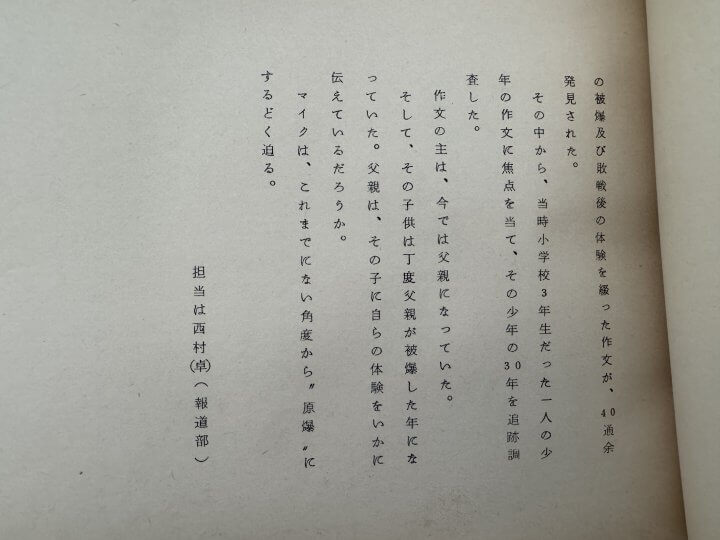 の被爆及び敗戦後の体験を綴った作文が、40通余
発見された。
その中から、当時小学校3年生だった一人の少
年の作文に焦点を当て、その少年の30年を追跡調
査した。
作文の主は、今では父親になっていた。
そして、その子供は丁度父親が被爆した年にな
っていた。父親は、その子に自らの体験をいかに
伝えているだろうか。
マイクは、これまでにない角度から〝原爆〟に
するどく迫る。
担当は西村(卓)(報道部)